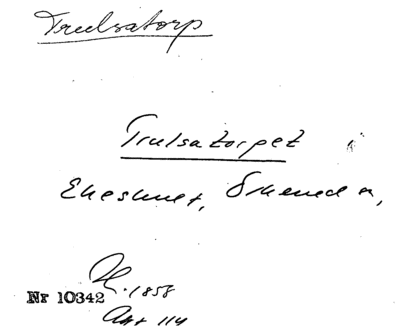 Trulsatorp
Trulsatorpet i
Ekeslunet, Skeneda,
Nr 10342
H. 1858
Akt 114